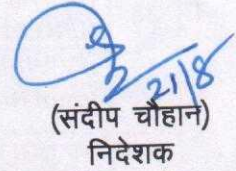 21/8
(संदीप चौहान)
निदेशक